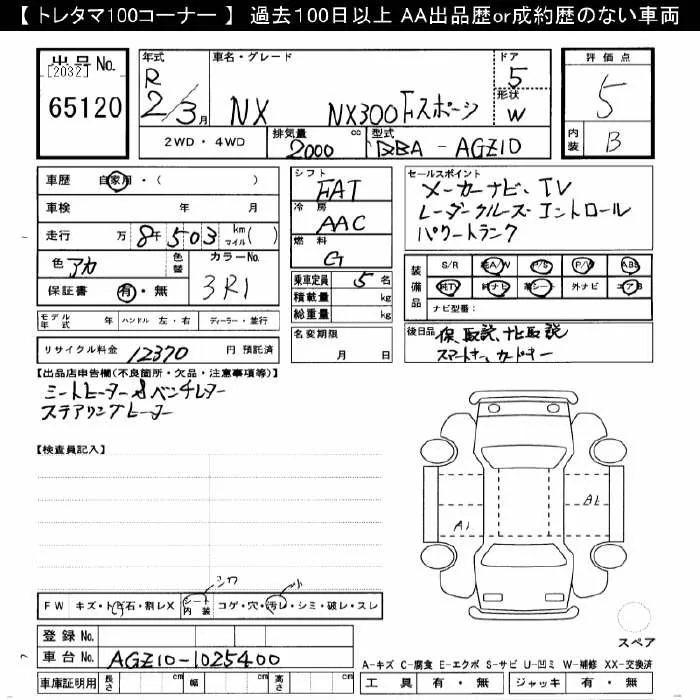 【 トレタマ100コーナー 】 過去100日以上 AA出品歴or成約歴のない車両
出品No. [2032] 65120
年式 R 2/3月
車名・グレード NX NX300 Fスポーツ
ドア 5
形状 W
評価点 5
内装 B
2WD・4WD
排気量 2000 cc
型式 DBA - AGZ10
車歴 自家用・( )
車検 年 月
走行 万 8千503 km マイル( )
色 アカ
色替
カラーNo. 3R1
保証書 有・無
シフト FAT
冷房 AAC
燃料 G
乗車定員 5名
積載量 kg
総重量 kg
名変期限 月 日
セールスポイント
メーカーナビ、TV
レーダークルーズコントロール
パワートランク
装備品 S/R 純A/W P/S P/W ABS
純TV 純ナビ 革シート 外ナビ エアB
ナビ型番:
モデル年式 年 ハンドル 左・右 ディーラー・並行
リサイクル料金 12370 円 預託済
後日品 保、取説、ナビ取説
スマートキー、カードキー
【出品店申告欄(不良箇所・欠品・注意事項等)】
シートヒーター&ベンチレター
ステアリングヒーター
【検査員記入】
A1
AL
シワ
小
FW キズ・トビ石・割レX シート内装 コゲ・穴・汚レ・シミ・破レ・スレ
登録No.
車台No. AGZ10-1025400
スペア
A-キズ C-腐食 E-エクボ S-サビ U-凹ミ W-補修 XX-交換済
車庫証明用 長さ cm 幅 cm 高さ cm
工具 有・無 ジャッキ 有・無